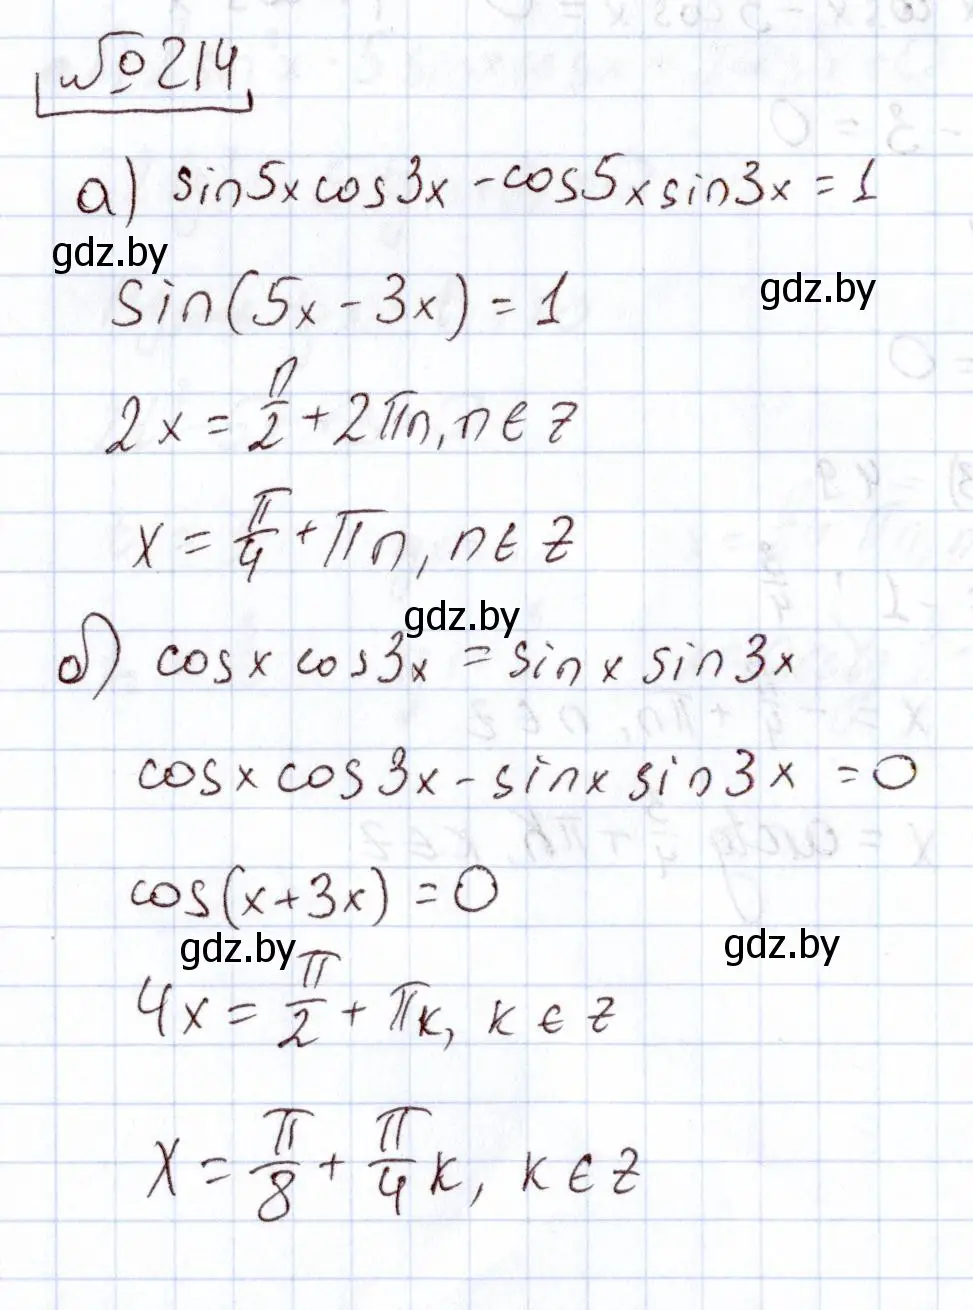 № 214
а) sin5x cos3x - cos5x sin3x = 1
gdz.by
sin(5x - 3x) = 1
gdz.by
2x = π/2 + 2πn, n ∈ z
x = π/4 + πn, n ∈ z
gdz.by
б) cosx cos3x = sinx sin3x
cosx cos3x - sinx sin3x = 0
cos(x+3x) = 0
gdz.by
gdz.by
4x = π/2 + πk, k ∈ z
x = π/8 + π/4 k, k ∈ z